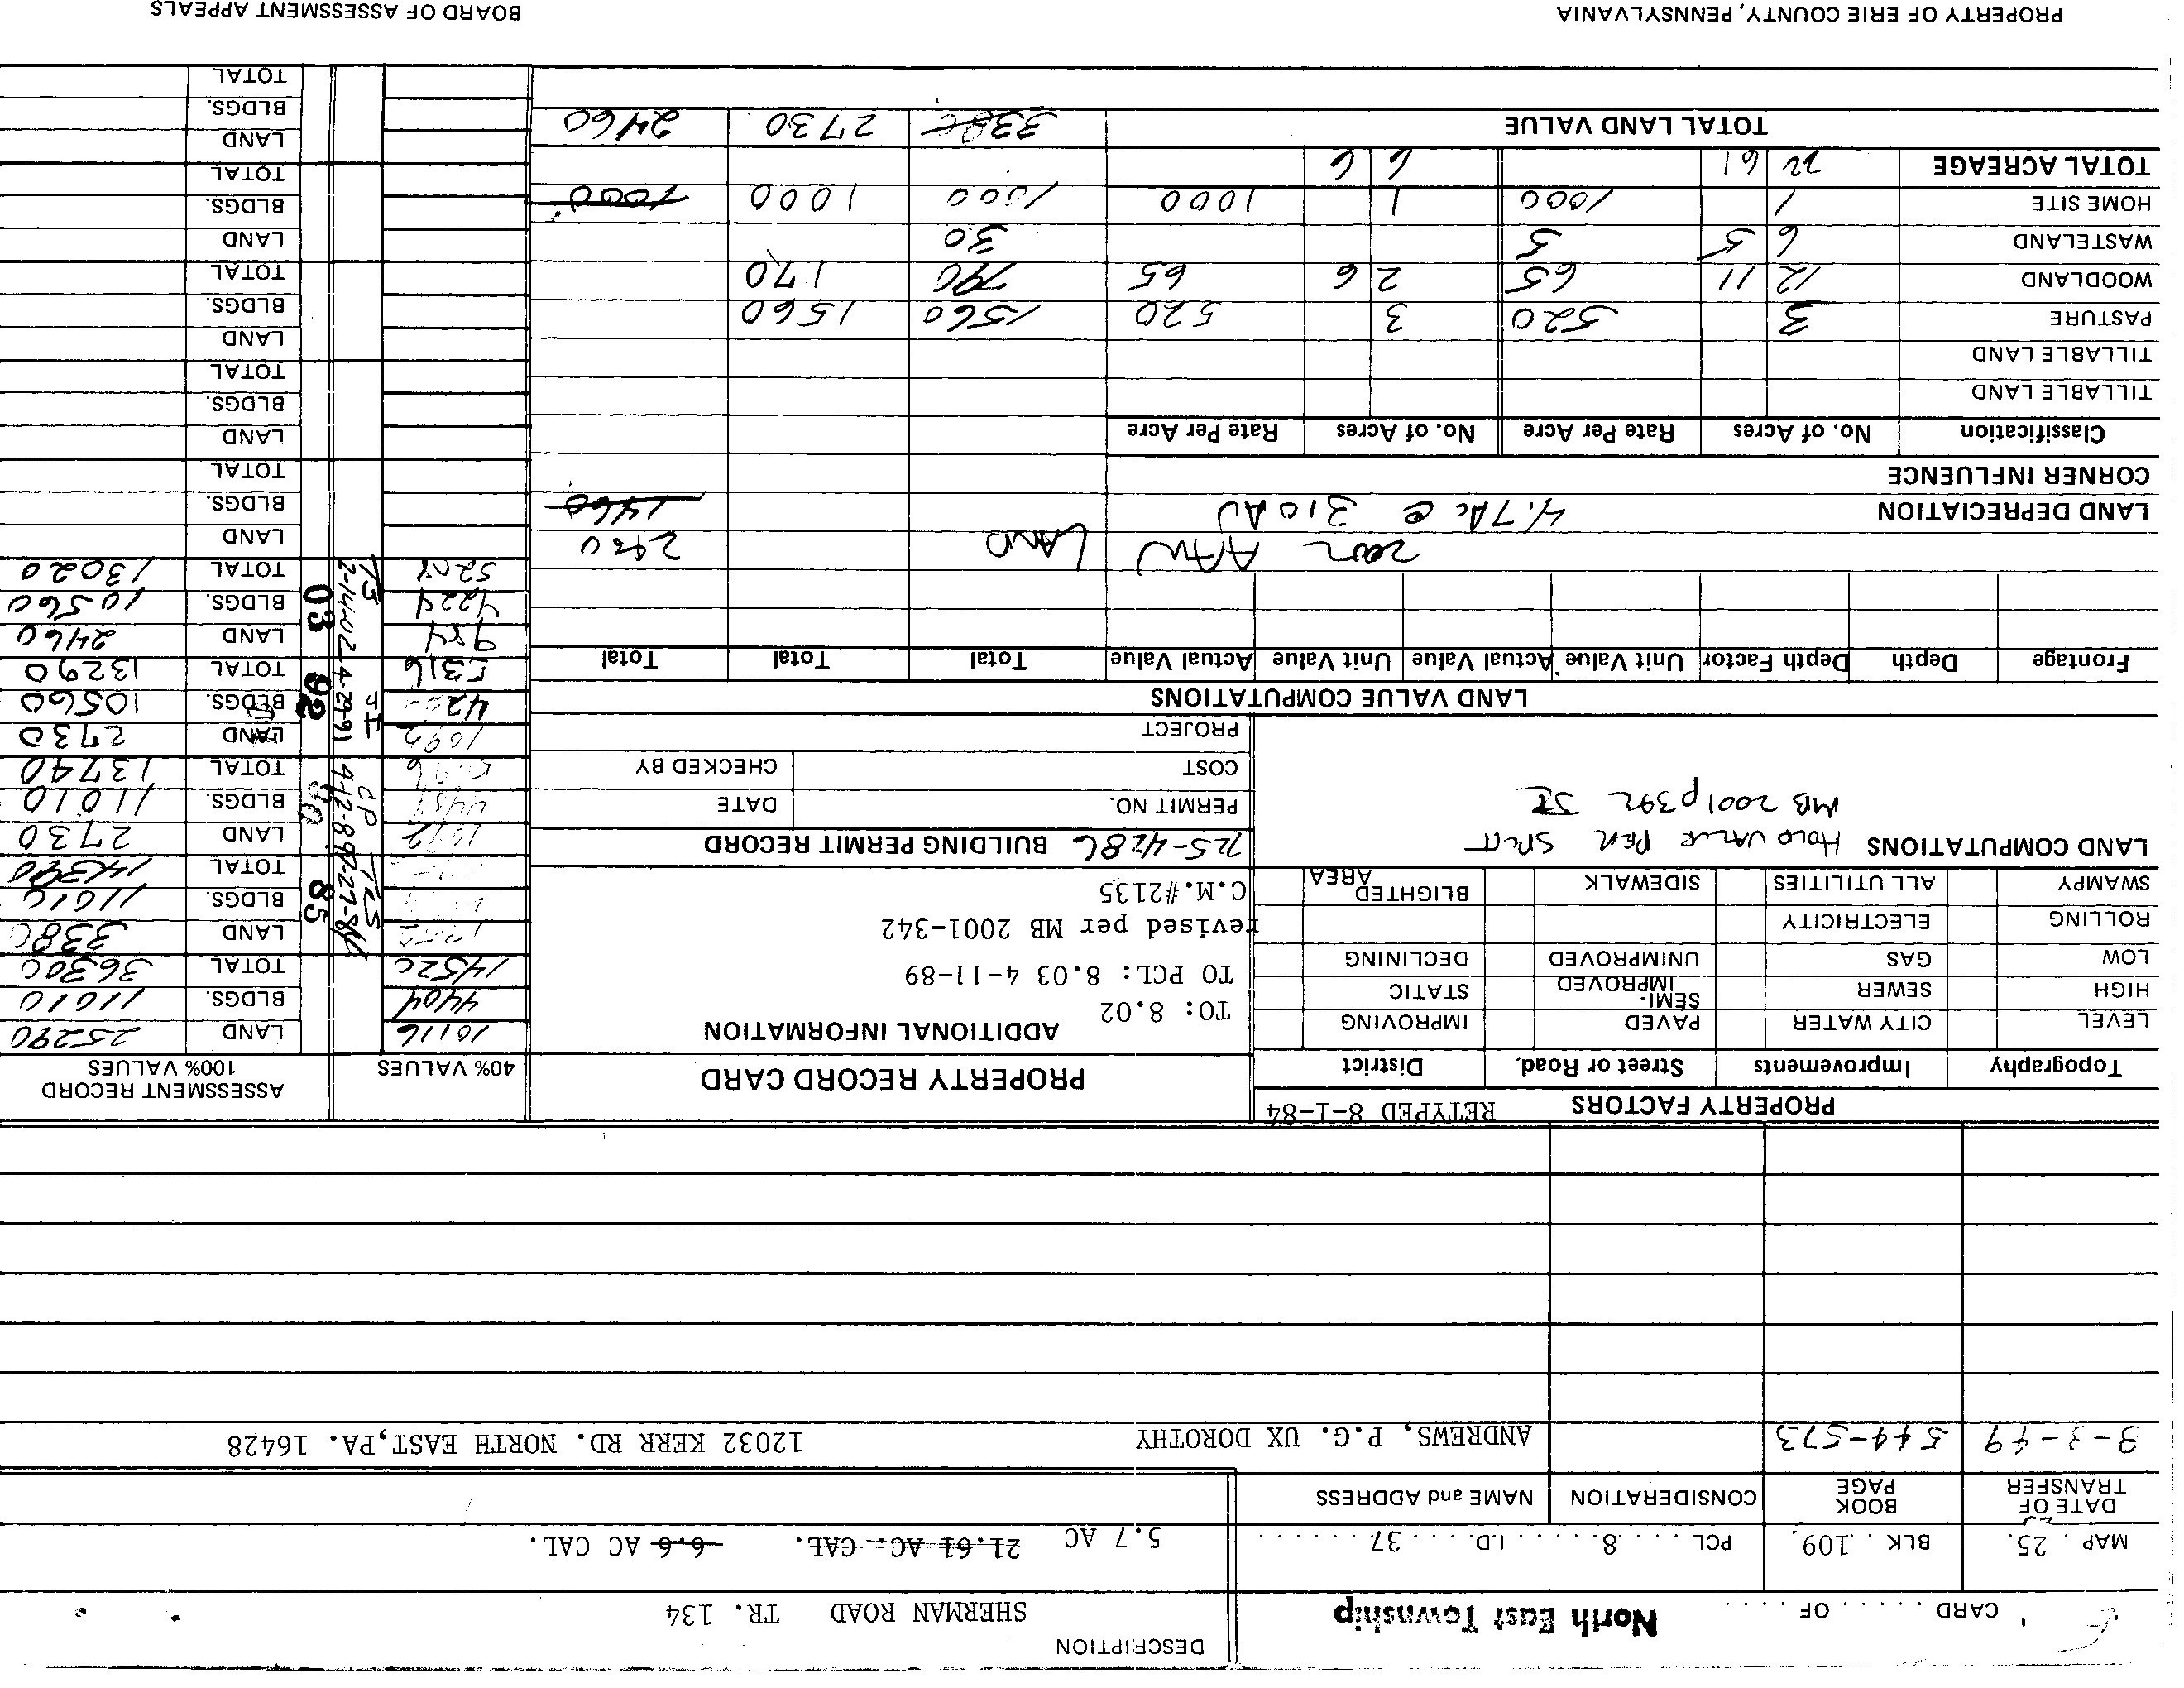 CARD ..... OF ....
North East Township
DESCRIPTION
SHERMAN ROAD TR. 134
MAP . 25. BLK . 109. PCL . . . . 8. . . . . I.D. . . . . 37. . . . . . . .
5.7 AC 21.61 AC. CAL. 6.6 AC CAL.
DATE OF TRANSFER BOOK PAGE CONSIDERATION NAME and ADDRESS
544-573 ANDREWS, P.G. UX DOROTHY 12032 KERR RD. NORTH EAST,PA. 16428
PROPERTY FACTORS RETYPED 8-1-84
Topography Improvements Street or Road. District
LEVEL CITY WATER PAVED IMPROVING
HIGH SEWER SEMI-IMPROVED STATIC
LOW GAS UNIMPROVED DECLINING
ROLLING ELECTRICITY
SWAMPY ALL UTILITIES SIDEWALK BLIGHTED AREA
LAND COMPUTATIONS HOLD VALUE PER SPLIT
MB 2001 p392
PROPERTY RECORD CARD
ADDITIONAL INFORMATION
TO: 8.02
TO PCL: 8.03 4-11-89
revised per MB 2001-342
C.M.#2135
BUILDING PERMIT RECORD
PERMIT NO. DATE
COST CHECKED BY
PROJECT
40% VALUES ASSESSMENT RECORD 100% VALUES
10116 LAND 25290
4404 BLDGS. 11010
14520 TOTAL 36300
LAND 3380
BLDGS. 11010
TOTAL 14390
85
LAND 2730
BLDGS. 11010
TOTAL 13740
LAND 2730
BLDGS. 10560
5316 TOTAL 13290
92 4-29-91
984 LAND 2460
4224 BLDGS. 10560
TOTAL 13020
03 2-14-02
LAND
BLDGS.
TOTAL
LAND
BLDGS.
TOTAL
LAND
BLDGS.
TOTAL
LAND
BLDGS.
TOTAL
LAND
BLDGS.
TOTAL
LAND VALUE COMPUTATIONS
Frontage Depth Depth Factor Unit Value Actual Value Unit Value Actual Value Total Total Total
2002 AAN LAND
LAND DEPRECIATION 4.7 AC @ 310 AV 1460
CORNER INFLUENCE
Classification No. of Acres Rate Per Acre No. of Acres Rate Per Acre
TILLABLE LAND
TILLABLE LAND
PASTURE 3 520 3 520 1560 1560
WOODLAND 12 11 65 2 6 65 790 170
WASTELAND 6 5 5 30
HOME SITE 1 1000 1 1000 1000 1000 1000
TOTAL ACREAGE 22 61 6 6
TOTAL LAND VALUE 3380 2730 2460
PROPERTY OF ERIE COUNTY, PENNSYLVANIA
BOARD OF ASSESSMENT APPEALS